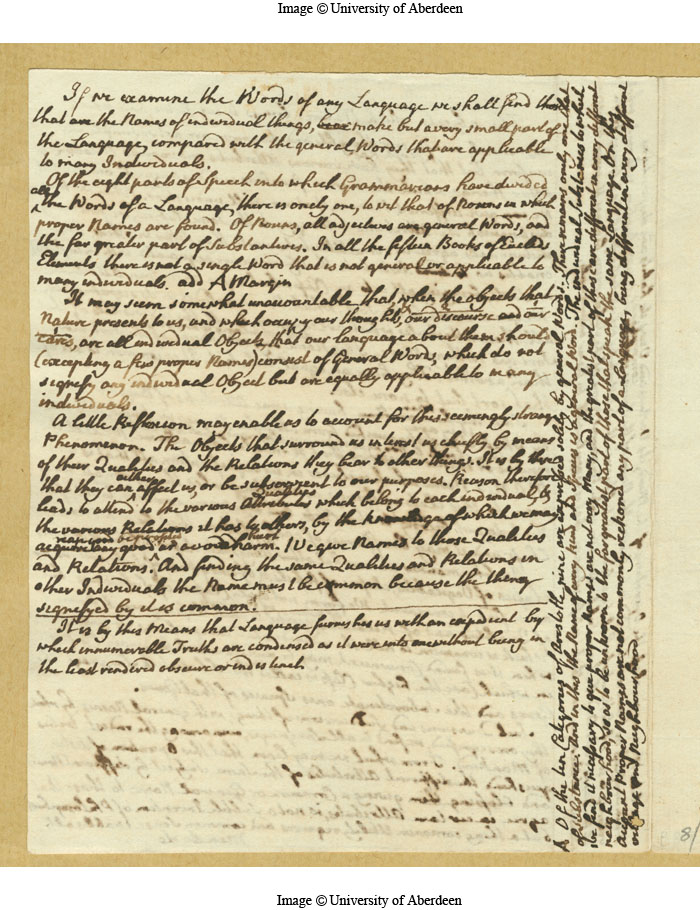 Image © University of Aberdeen
If we examine the Words of any Language we shall find those
that are the Names of individual things, make but a very small part of
the Language, compared with the general Words that are applicable
to many Individuals.
Of the eight parts of Speech into which Grammarians have divided
all the Words of a Language, there is onely one, to wit that of Nouns in which
proper Names are found. Of Nouns, all adjectives are general Words, and
the far greater part of Substantives. In all the fifteen Books of Euclids
Elements there is not a single Word that is not general or applicable to
many individuals. add A Margin
It may seem somewhat unaccountable That when the objects that
Nature presents to us, and which occupy our thoughts, our discourse and our
cares, are all individual Objects, that our language about them should
(excepting a few proper Names) consist of General Words, which do not
signify any individual Object but are equally applicable to many
individuals.
A little Reflexion may enable us to account for this seemingly strange
Phenomenon. The Objects that surround us interest us chiefly by means
of their Qualities and the Relations they bear to other things. It is by these
that they can either affect us, or be subservient to our purposes. Reason therefore
leads to attend to the various Qualities Attributes which belong to each individual, &
the various Relations it has to others, by the of which we may
acquire any good or avoid harm. We give Names to those Qualities
and Relations. And finding the same Qualities and Relations in
other Individuals the Name must be common because the thing
signifyed by it is common.
It is by this Means that Language furnishes us with an expedient by
which innumerable Truths are condensed as it were into one without being in
the least rendered obscure or indistinct
A Of the ten Categories of Aristotle nine are expressed solely by general Words. There remains onely one that
of Substances and in this the Name of every kind and Species is a general Word. The individual Substances to which
we find it necessary to give proper Names are not very many, and the greatest part of these are different in every different
neighbourhood, so as to be unknown to the far greatest part of those that speak the same Language. On this
account Proper Names are not commonly reckoned any part of a Language, being different in every different
and Neighbourhood
8/
Image © University of Aberdeen